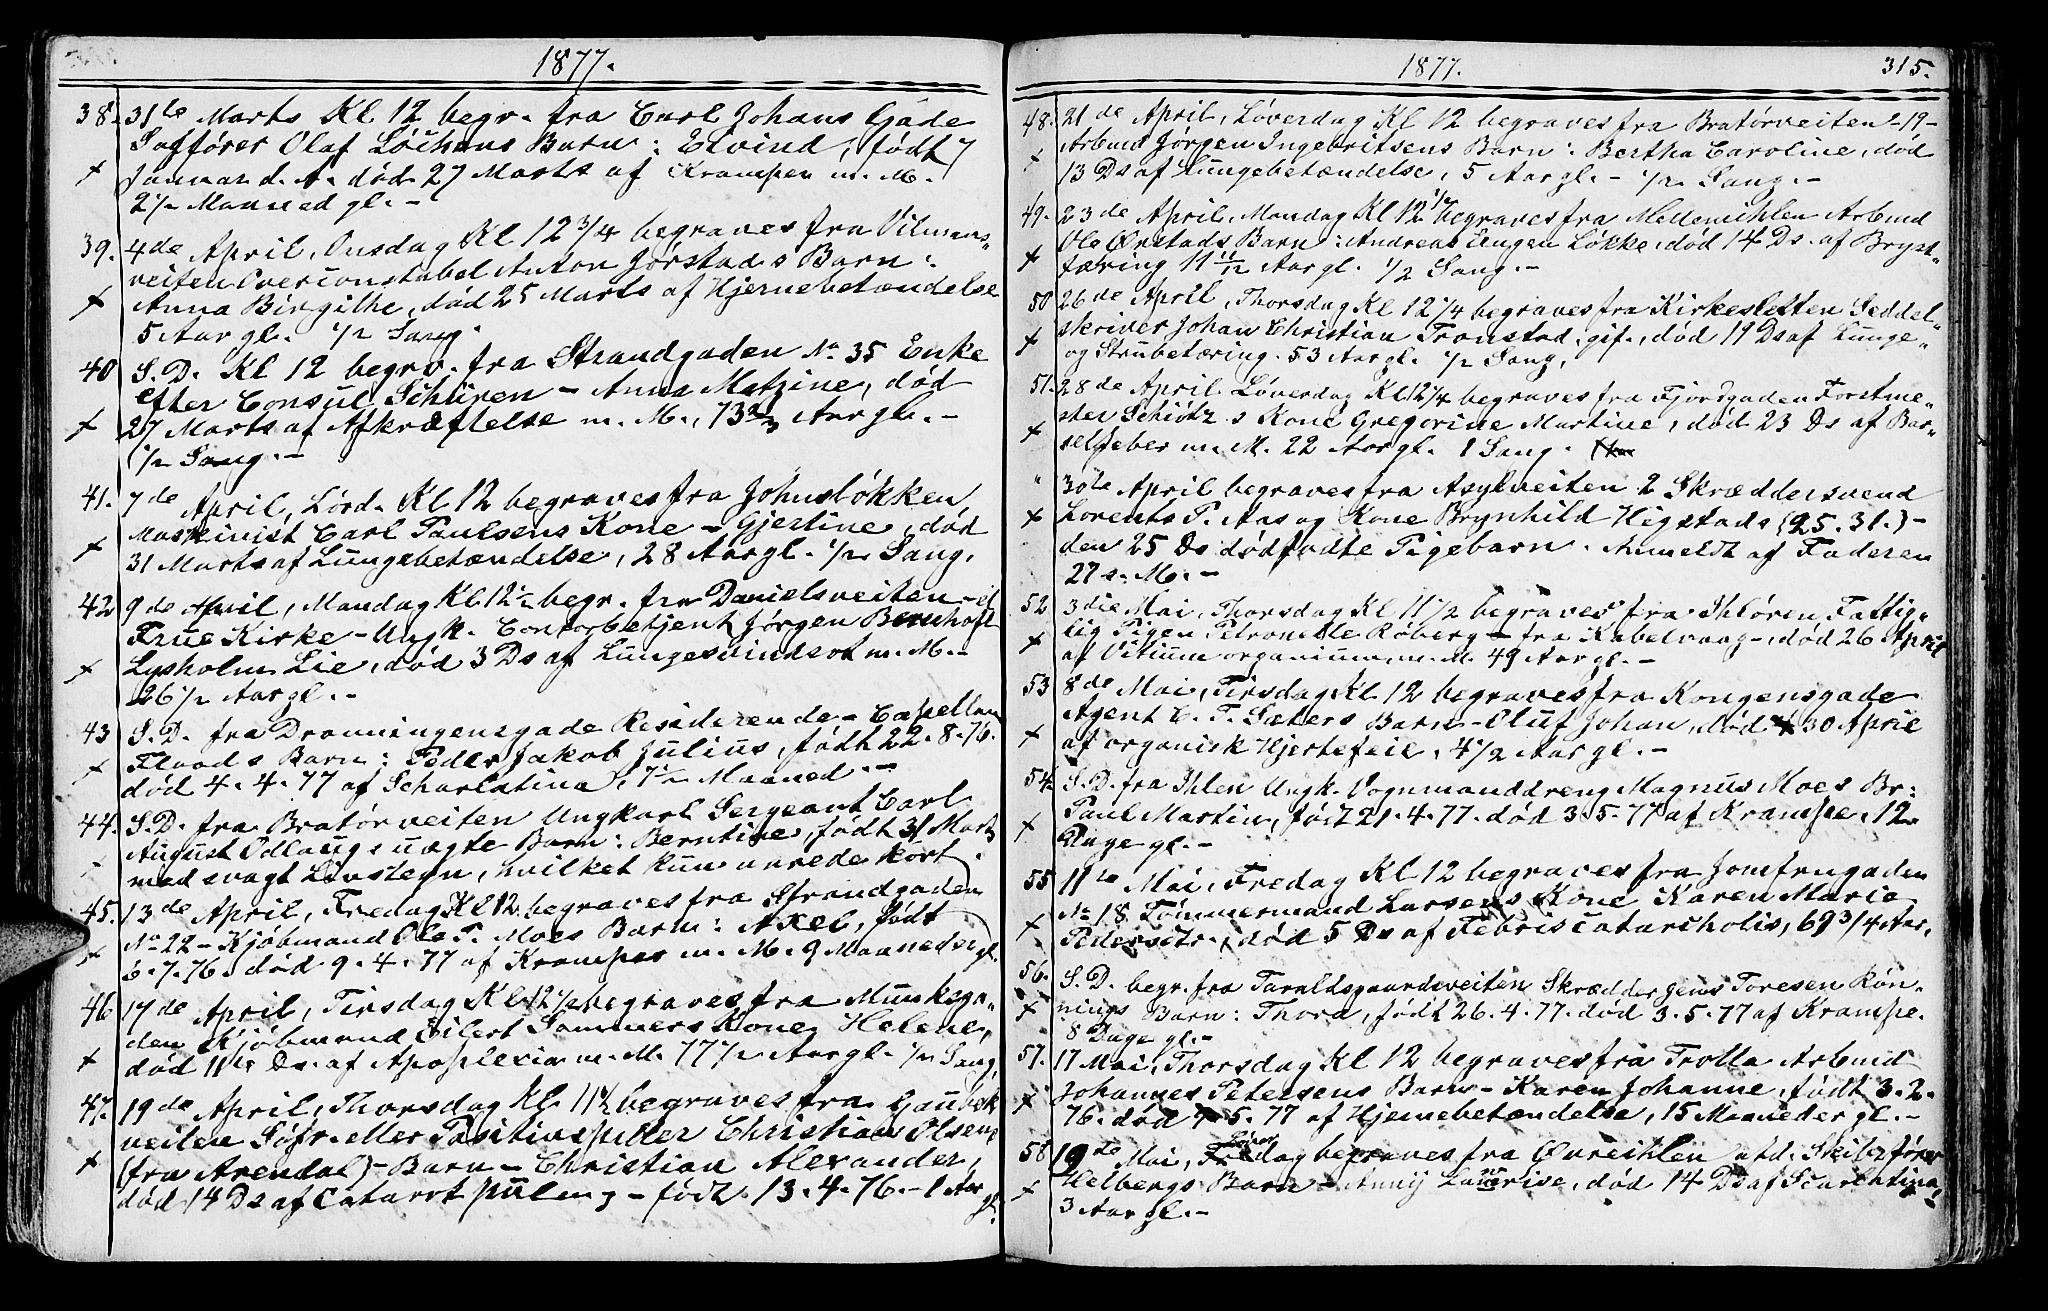 1877.
38. 31te Marts Kl 12 begr. fra Carl Johans Gade
Sagfører Olaf Löchens Barn: Eivind, født 7
Januar d. A. død 27 Marts af Kramper m. M.
2 1/2 Maaned gl. –
39. 4de April, Onsdag Kl 12 3/4 begraves fra Vilmans-
veiten Overconstabel Anton Jørstads Barn:
Anna Birgithe, død 25 Marts af Hjernebetændelse
5 Aar gl. 1/2 Sang.
40 S. D. Kl 12 begrv. fra Strandgaden No 35 Enke
efter Consul Schüren – Anna Matzine, død
27 Marts af Afkræftelse m. M., 73 Aar gl. –
1/2 Sang. –
41. 7de April, Lørd. Kl 12 begraves fra Johnsløkken
Maskinist Carl Paulsens Kone – Gjertine, død
31 Marts af Lungebetændelse, 28 Aar gl. 1/2 Sang.
42 9de April, Mandag Kl 12 1/2 begr. fra Danielsveiten – af
Frue Kirke – Ungk. Contorbetjent Jørgen Bernhoft
Lysholm Lie, død 3 Ds af Lungesvindsot m. M. –
26 1/2 Aar gl. –
43 S. D. fra Dronningensgade Residerende – Capellan
Floods Barn: Peder Jakob Julius, født 22. 8. 76.
død 4. 4. 77 af Scharlatina, 7 1/2 Maaned. –
44. S. D. fra Bratørveiten Ungkarl Sergeant Carl
August Odlaugs uægte Barn: Berntine, født 31 Marts
med svagt Livstegn, hvilket kun varede kort.
45. 13de April, Fredag Kl 12 begraves fra Strandgaden
No 22 – Kjøbmand Ole P. Moes Barn: Axel, født
6. 7. 76. død 9. 4. 77 af Kramper m. M. 9 Maaneder gl.
46 17de April, Tirsdag Kl 12 1/2 begraves fra Munkega-
den Kjøbmand Eilert Sommers Kone Helene,
død 11te Ds. af Apoplexia m. M. 77 1/2 Aar gl. 1/2 Sang.
47. 19de April, Thorsdag Kl 11 1/2 begraves fra Gaubæk
veiten Søfr. eller Positivspiller Christian Olsens
(fra Arendal) – Barn – Christian Alexander,
død 14 Ds af Catarrh – født 13. 4. 76. – 1 Aar
gl.
1877. 315.
48. 21de April, Løverdag Kl 12 begraves fra Bratørveiten – 19 –
Arbmd Jørgen Ingebritsens Barn: Bertha Caroline, død
13 Ds af Lungebetændelse, 5 Aar gl. – 1/2 Sang. –
49. 23de April, Mandag Kl 12 1/2 begraves fra Møllemihlen Arbmd
Ole Ørstads Barn: Andreas Eugen Løkke, død 14 Ds. af Bryst-
tæring 11 11/12 Aar gl. 1/2 Sang. –
50 26de April, Thorsdag Kl 12 1/4 begraves fra Kirkesletten Seddel-
skriver Johan Christian Tronstad, gif., død 19 Ds af Lunge-
og Strubetæring. 53 Aar gl. 1/2 Sang.
51. 28de April. Løverdag Kl 12 1/4 begraves fra Fjordgaden Forstme-
ster Schiötz s Kone Gregorine Martine, død 23 Ds af Bar-
selfeber m. M. 22 Aar gl. 1 Sang.
" 30te April begraves fra Asylveiten 2 Skræddersvend
Lorents P. Aas og Kone Brynhild Higstads (25. 31.) –
den 25 Ds dødfødte Pigebarn. Anmeldt af Faderen
27 s. M. –
52 3die Mai, Thorsdag Kl 11 1/2 begraves fra Ihløren, Fattig-
lig Pigen Petronelle Røberg – fra Kabelvaag –, død 26 April
af Vitium organium m. M. 49 Aar gl. –
53 8de Mai, Tirsdag Kl 12 begraves fra Kongensgade
Agent C. T. Sæters Barn – Oluf Johan, død 30 April
af organisk Hjertefeil, 4 1/2 Aar gl. –
54. S. D. fra Ihlen Ungk. Vognmanddreng Magnus Moes Br:
Paul Martin, født 21. 4. 77. død 3. 5. 77 af Krampe. 12
Dage gl. –
55 11te Mai, Fredag Kl 12 begraves fra Jomfrugaden
No 18 Tømmermand Larsens Kone Karen Marie
Pedersdtr., død 5 Ds af Febris catarrholis, 69 3/4 Aar.
56. S. D. begr. fra Taraldsgaardsveiten Skrædder Jens Toresen Røn-
nings Barn: Thora, født 26. 4. 77. død 3. 5. 77 af Krampe.
8 Dage gl. –
57. 17 Mai, Thorsdag Kl 12 begraves fra Trolla Arbmd
Johannes Petersens Barn – Karen Johanne, født 3. 2.
76. død 5. 77 af Hjernebetændelse, 15 Maaneder gl. –
58 19de Mai, Løverdag begraves fra Øvreihlen Skibsfører
Helbergs Barn – Anny Lovise, død 14 Ds af Scarlatina,
3 Aar gl. –